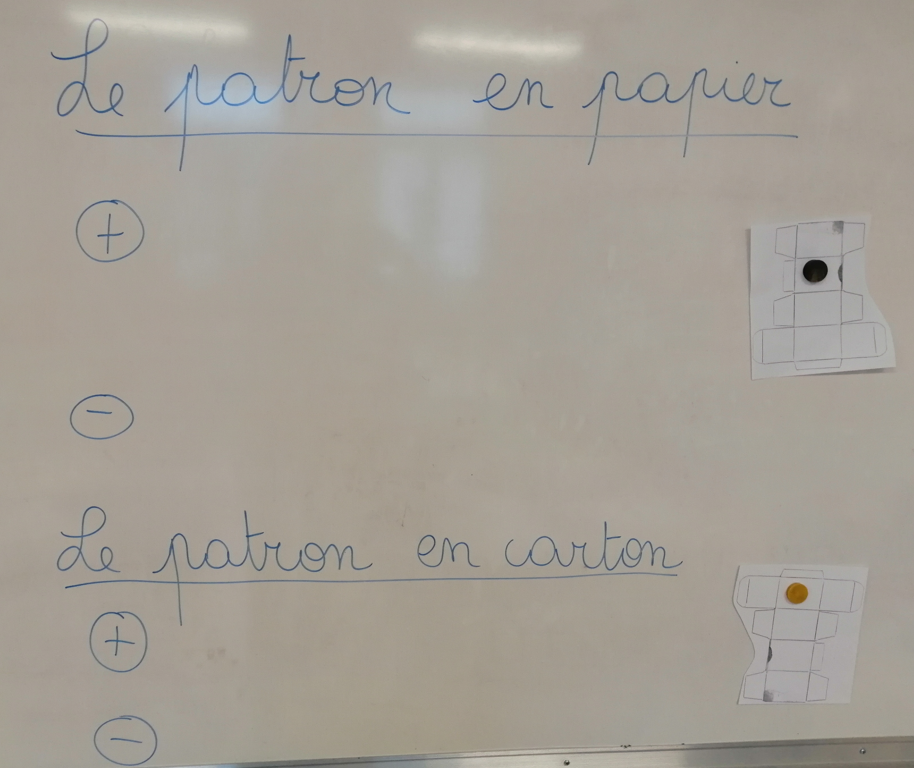 Le patron en papier
+
-
Le patron en carton
+
-